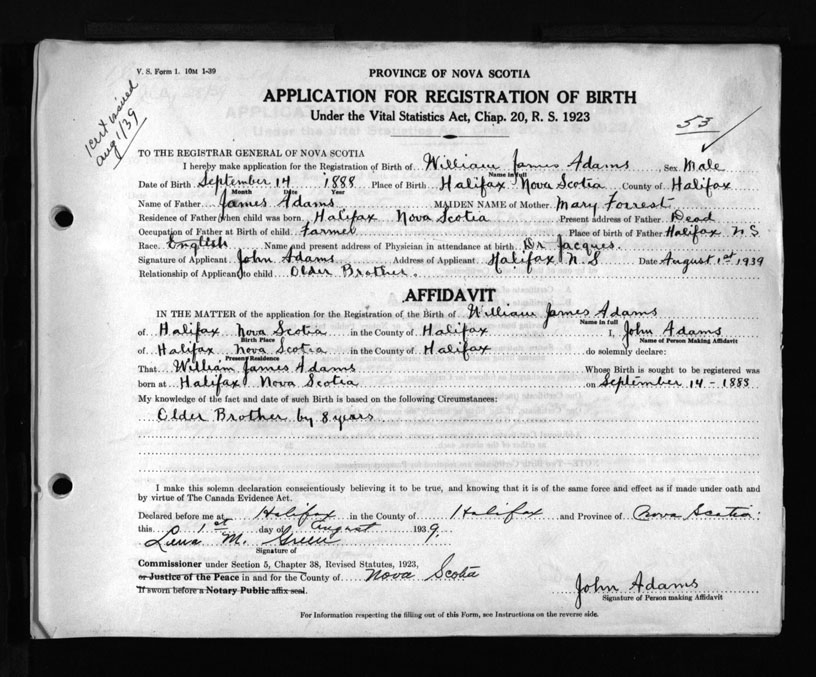 V. S. Form 1. 10M 1-39
1 cert issued
aug 1/39
PROVINCE OF NOVA SCOTIA
APPLICATION FOR REGISTRATION OF BIRTH
Under the Vital Statistics Act, Chap. 20, R. S. 1923
53
TO THE REGISTRAR GENERAL OF NOVA SCOTIA
I hereby make application for the Registration of Birth of William James Adams Sex Male
Name in full
Date of Birth September 14 1888 Place of Birth Halifax Nova Scotia County of Halifax
Month Date Year
Name of Father James Adams MAIDEN NAME of Mother Mary Forrest
Residence of Father when child was born Halifax Nova Scotia Present address of Father Dead
Occupation of Father at Birth of child Farmer Place of birth of Father Halifax N.S.
Race English Name and present address of Physician in attendance at birth Dr Jacques.
Signature of Applicant John Adams Address of Applicant Halifax N.S Date August 1st 1939
Relationship of Applicant to child Older Brother.
AFFIDAVIT
IN THE MATTER of the application for the Registration of the Birth of William James Adams
Name in full
of Halifax Nova Scotia in the County of Halifax I, John Adams
Birth Place Name of Person Making Affidavit
of Halifax Nova Scotia in the County of Halifax do solemnly declare:
Present Residence
That William James Adams Whose Birth is sought to be registered was
born at Halifax Nova Scotia on September 14 - 1888
My knowledge of the fact and date of such Birth is based on the following Circumstances:
Older Brother by 8 years
I make this solemn declaration conscientiously believing it to be true, and knowing that it is of the same force and effect as if made under oath and
by virtue of The Canada Evidence Act.
Declared before me at Halifax in the County of Halifax and Province of Nova Scotia:
this 1st day of August 1939.
M. Green
Signature of
Commissioner under Section 5, Chapter 38, Revised Statutes, 1923,
or Justice of the Peace in and for the County of Nova Scotia
If sworn before a Notary Public affix seal.
John Adams
Signature of Person making Affidavit
For Information respecting the filling out of this Form, see Instructions on the reverse side.